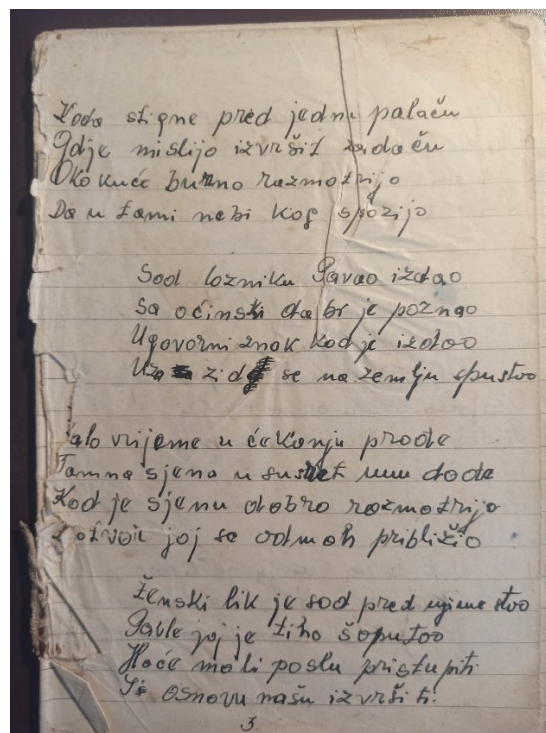 Kada stigne pred jednu palaču
Gdje mislijo izvršit zadaču
Oko kuće burno razmotrijo
Da u tami nebi kog spozijo
Sad lozniku Pavao izdao
Sa očinski da bi je poznao
Ugovorni znak kad je izdao
Uza zid se na zemlju spustvo
Malo vrijeme u čekanju prođe
Tamna sjena u susret mu dođe
Kad je sjenu dobro razmotrijo
joj se odmah približio
Ženski lik je sad pred njime stvo
Pavle joj je tiho šaputao
Hoće mo li poslu pristupiti
I osnovu našu izvršiti.
3